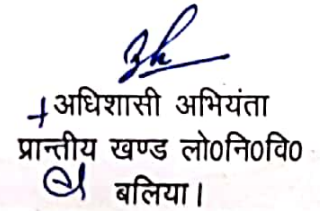 अधिशासी अभियंता
प्रान्तीय खण्ड लो0नि0वि0
बलिया।